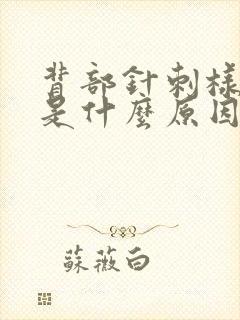 背部針刺樣
是什麼原因
蘇薇白